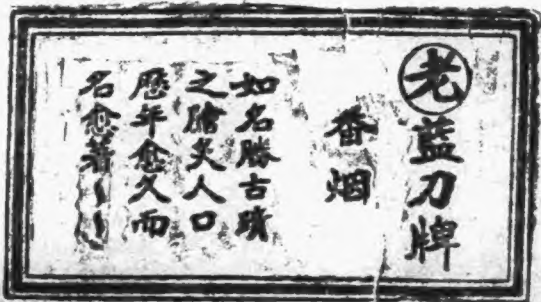 老藍刀牌
香烟
如名勝古蹟
之膾炙人口
歷年愈久而
名愈著!!